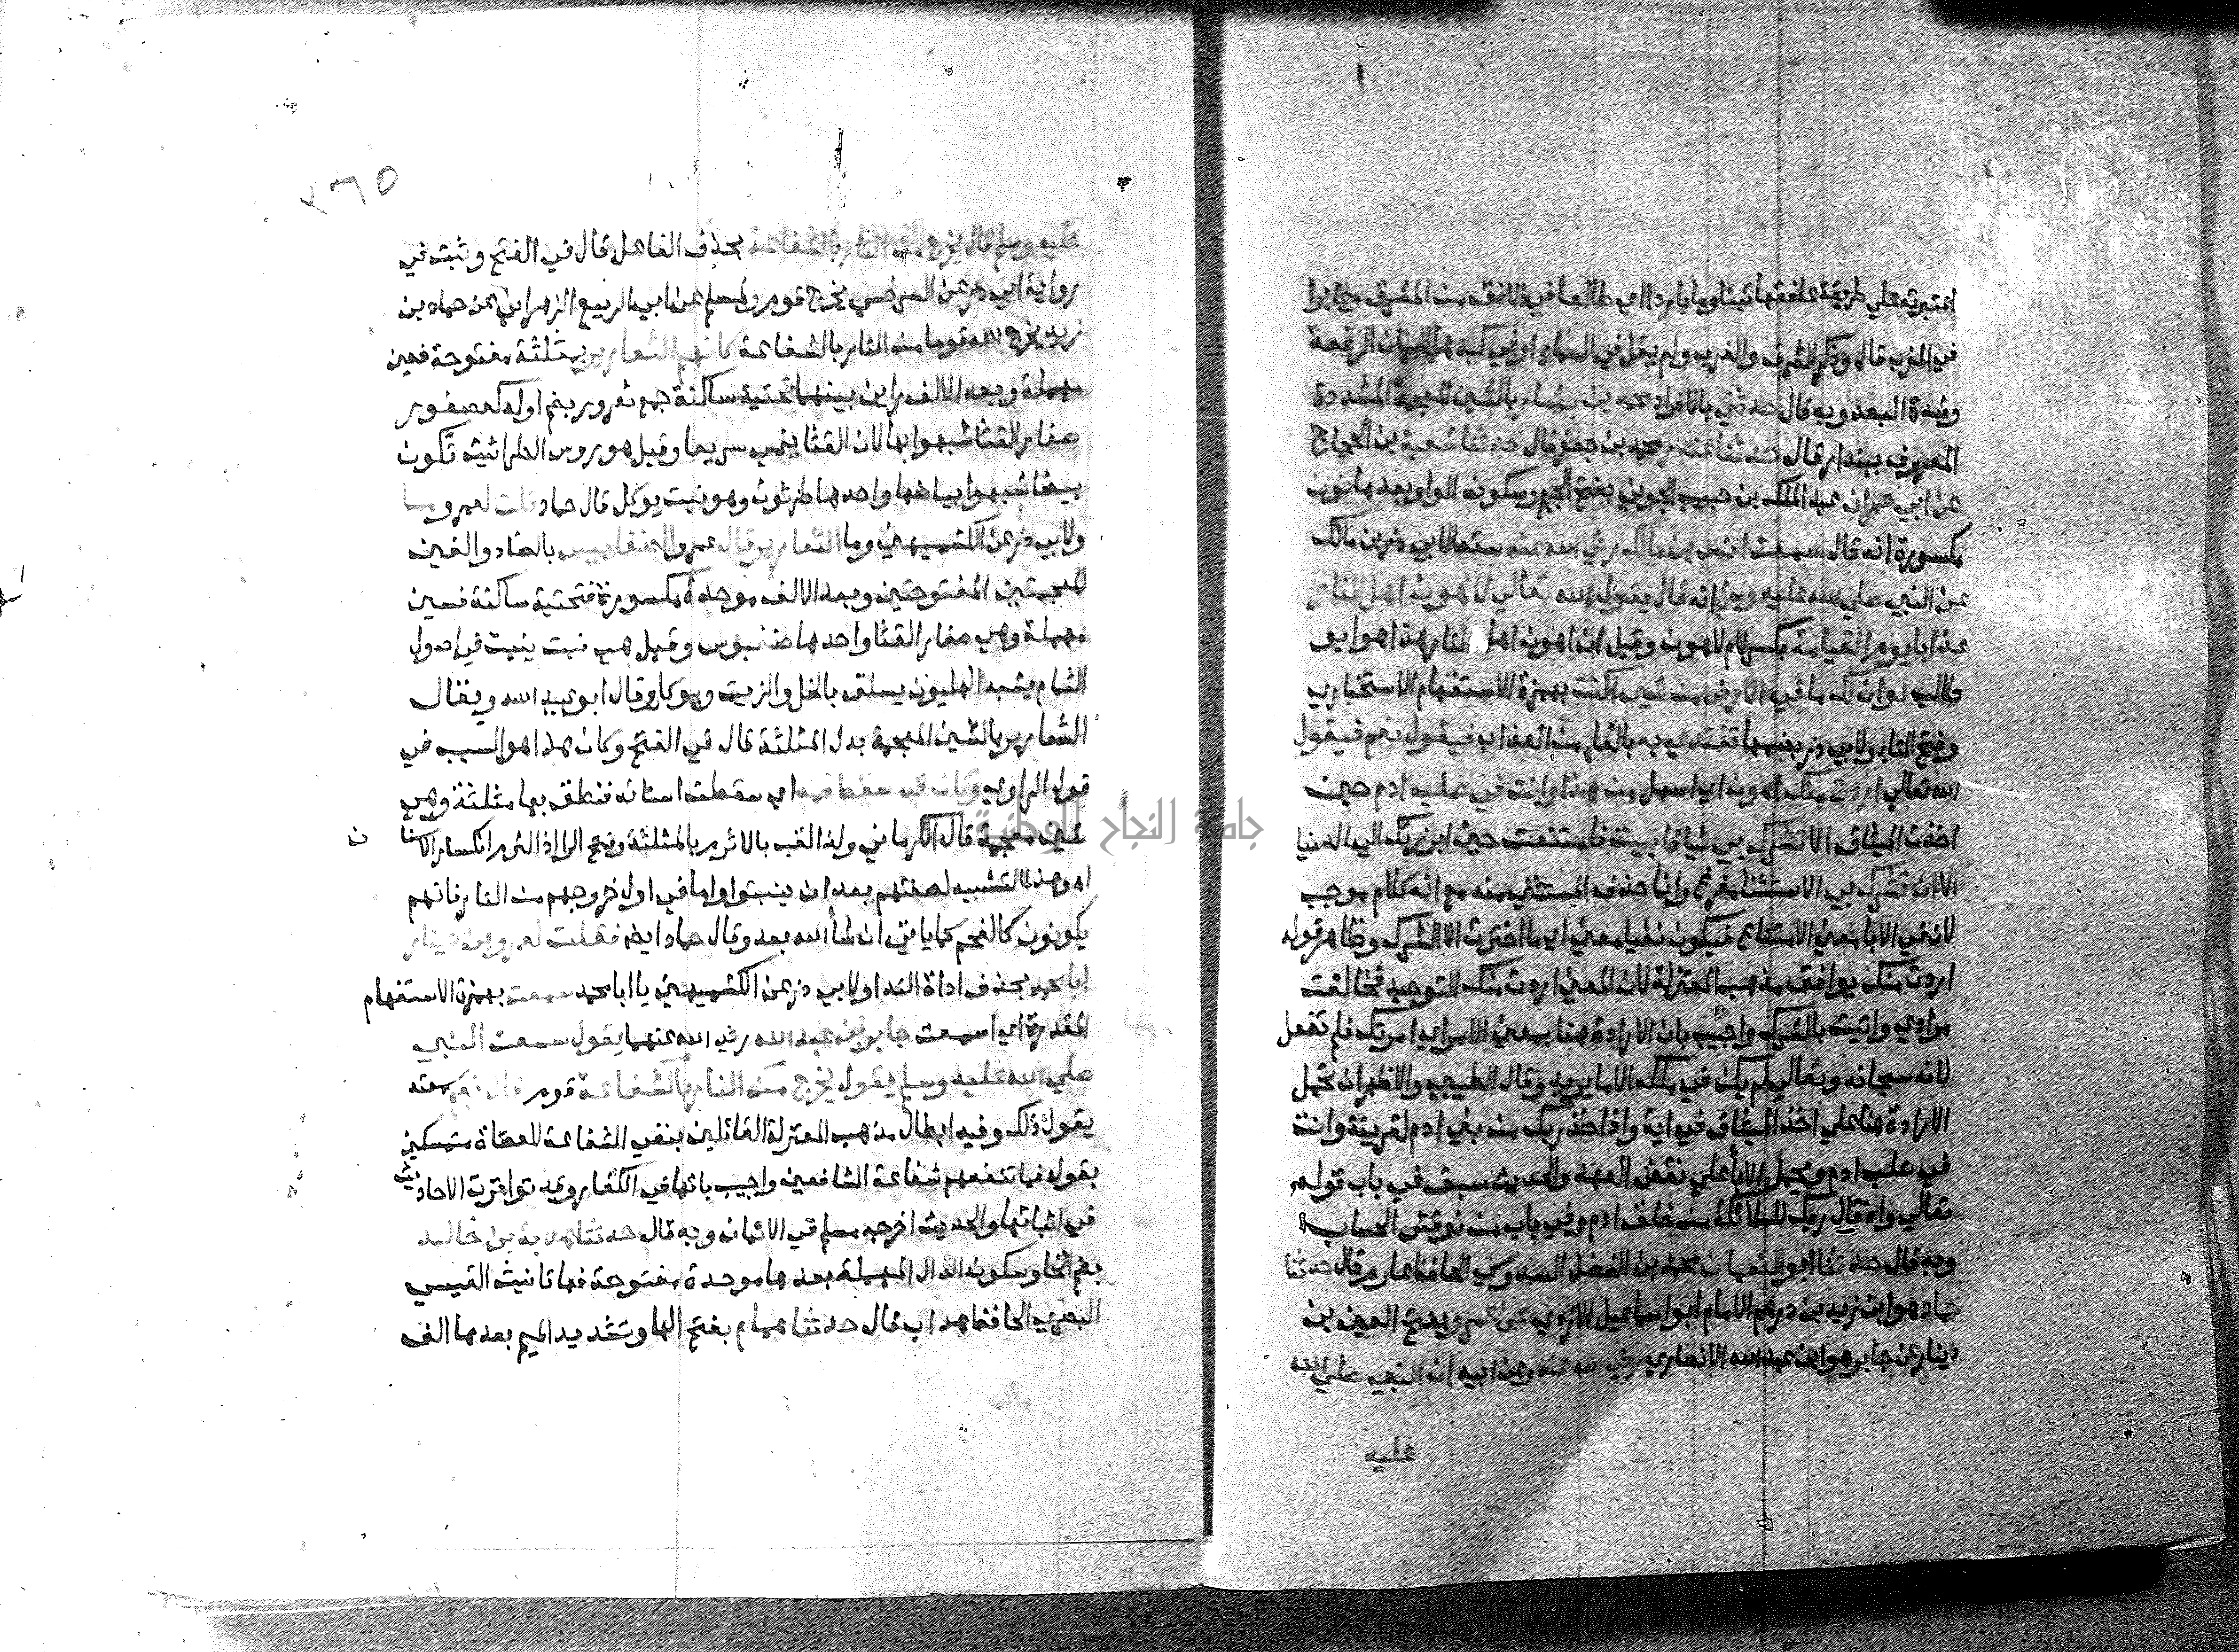 اعتبرته علي طريقة علفقتها تبنا وما باردا اي طالعا في الافق من المشرق وغابرا
في المغرب قال وذكر الشرق والغرب ولم يقل في السماء او في كبدها لبيان الرفعة
وشدة البعد وبه قال حدثني بالافراد محمد بن بشار بالشين المعجمة المشددة
المعروف ببندار قال حدثنا غندر محمد بن جعفر قال حدثنا شعبة بن الحجاج
عن ابي عمران عبد الملك بن حبيب الجوني بفتح الجيم وسكون الواو بعدها نون
مكسورة انه قال سمعت انس بن مالك رضي الله عنه سقط لابي ذر بن مالك
عن النبي صلي الله عليه وسلم انه قال يقول الله تعالي لاهون اهل النار
عذابا يوم القيامة بكسر لام لاهون وقيل ان اهون اهل النار هذا هو ابو
طالب لو ان لك ما في الارض من شي اكنت بهمزة الاستفهام الاستخباري
وفتح التا ولابي ذر بضمها تفتدي به بالفا من العذاب فيقول نعم فيقول
الله تعالي اردت منك اهون اي اسهل من هذا وانت في صلب ادم حين
اخذت الميثاق الا تشرك بي شيا فابيت فامتنعت حين ابرزتك الي الدنيا
الا ان تشرك بي الاستثنا مفرغ وانما حذف المستثني منه مع انه كلام موجب
لان في الابا معني الامتناع فيكون نفيا معني اي ما اخترت الا الشرك وظاهر قوله
اردت منك يوافق مذهب المعتزلة لان المعني اردت منك التوحيد فخالفت
مرادي واتيت بالشرك واجيب بان الارادة هنا بمعني الامر اي امرتك فلم تفعل
لانه سبحانه وتعالي لم يكن في ملكه الا ما يريد وقال الطيبي والاظهر ان تحمل
الارادة هنا علي اخذ الميثاق في اية واذ اخذ ربك من بني ادم لقرينة وانت
في صلب ادم ويحمل الابا علي نقض العهد والحديث سبق في باب قوله
تعالي واذ قال ربك للملائكة من خلف ادم وفي باب من نوقش الحساب
وبه قال حدثنا ابو النعمان محمد بن الفضل السدوسي الحافظ عارم قال حدثنا
حماد هو ابن زيد بن درهم الامام ابو اسماعيل الازدي عن عمرو بفتح العين بن
دينار عن جابر هو ابن عبد الله الانصاري رضي الله عنه وعن ابيه ان النبي صلي الله
عليه
٣٦٥
عليه وسلم قال يخرج من النار بالشفاعة بحذف الفاعل قال في الفتح وثبت في
رواية ابي ذر عن السرخسي يخرج قوم ولمسلم عن ابي الربيع الزهراني عن حماد بن
زيد يخرج الله قوما من النار بالشفاعة كانهم الثعارير بمثلثة مفتوحة فعين
مهملة وبعد الالف رايين بينهما تحتية ساكنة جمع ثعرور بضم اوله كعصفور
صغار القثا شبهوا بها لان القثا ينمي سريعا وقيل هو روس الطراثيث تكون
بيضا شبهوا ببياضها واحدها طرثوث وهو نبت يوكل قال حماد قلت لعمرو ما
ولابي ذر عن الكشميهني وما الثعارير قال عمرو الضغابيس بالضاد والغين
المعجمتين المفتوحتين وبعد الالف موحدة مكسورة فتحتية ساكنة فسين
مهملة وهي صغار القثا واحدها ضغبوس وقيل هي نبت ينبت في اصول
الثمام يشبه الهليون يسلق بالخل والزيت ويوكل وقال ابو عبيد الله ويقال
الشعارير بالشين المعجمة بدل المثلثة قال في الفتح وكان هذا هو السبب في
قول الراوي وكان قد سقط فمه اي سقطت اسنانه فنطق بها مثلثة وهي
شين معجمة قال الكرماني ولذا لقب بالاثرم بالمثلثة وفتح الرا اذ الثرم انكسار الاسنان
اه وهذا التشبيه لصفتهم بعد ان ينبتوا واما في اول خروجهم من النار فانهم
يكونون كالفحم كما ياتي ان شأ الله بعد وقال حماد ايضا فقلت لعمرو بن دينار
ابا محمد بحذف اداة الندا ولابي ذر عن الكشميهني يا ابا محمد سمعت بهمزة الاستفهام
المقدرة اي اسمعت جابر بن عبد الله رضي الله عنهما يقول سمعت النبي
صلي الله عليه وسلم يقول يخرج من النار بالشفاعة قوم قال نعم سمعته
يقول ذلك وفيه ابطال مذهب المعتزلة القائلين بنفي الشفاعة للعصاة متمسكين
بقوله فما تنفعهم شفاعة الشافعين واجيب بانها في الكفار وقد تواترت الاحاديث
في اثباتها والحديث اخرجه مسلم في الايمان وبه قال حدثنا هدبة بن خالد
بضم الها وسكون الدال المهملة بعدها موحدة مفتوحة فها تانيث القيسي
البصري الحافظ هداب قال حدثنا همام بفتح الها وتشديد الميم بعدها الف
جامعة النجاح الوطنية